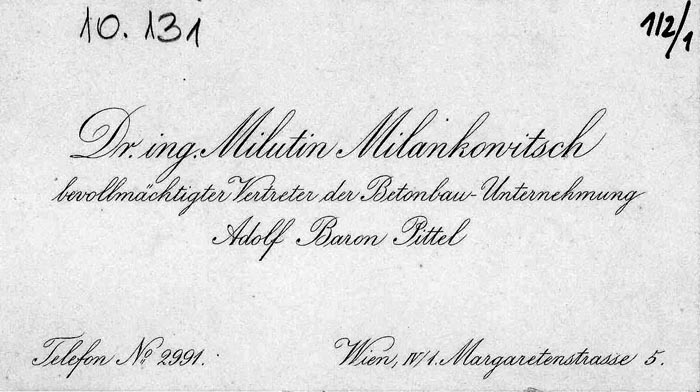 10.131
112/1
Dr. ing. Milutin Milankowitsch
bevollmächtigter Vertreter der Betonbau-Unternehmung
Adolf Baron Pittel
Telefon No 2991.
Wien, IV/1. Margaretenstrasse 5.